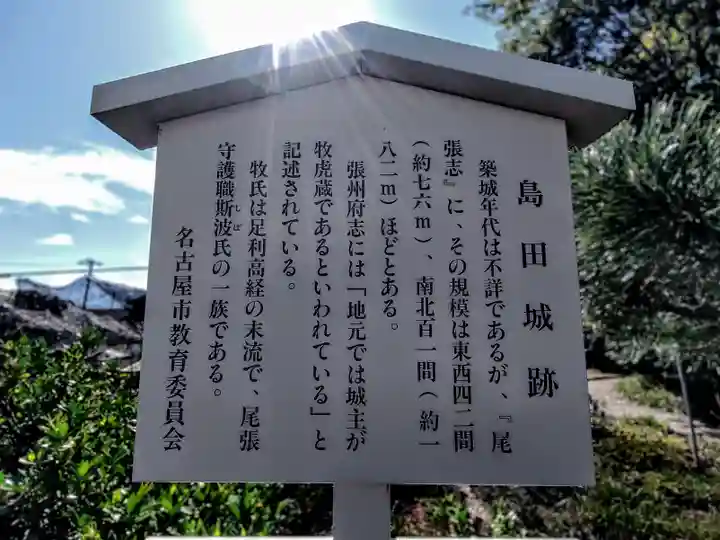 島田城跡
築城年代は不詳であるが、『尾
張志』に、その規模は東西四二間
(約七六m)、南北百一間(約一
八二m)ほどとある。
張州府志には「地元では城主が
牧虎蔵であるといわれている」と
記述されている。
牧氏は足利高経の末流で、尾張
守護職斯波氏の一族である。
名古屋市教育委員会